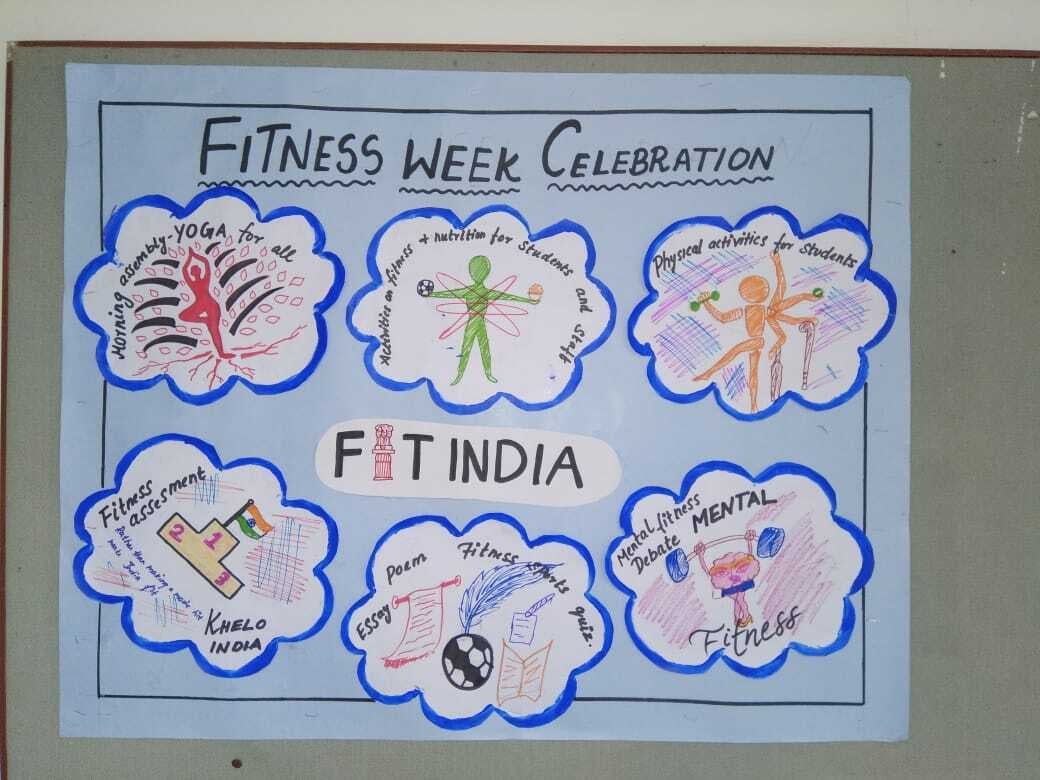 FITNESS WEEK CELEBRATION
Morning assembly-YOGA for all
Activities on fitness + nutrition for students and staff
Physical activities for students
FIT INDIA
Fitness
assesment
2 1
3
Rather than making a
make India fit
KHELO
INDIA
Essay Poem Fitness sports quiz.
Mental fitness
Debate
MENTAL
Fitness